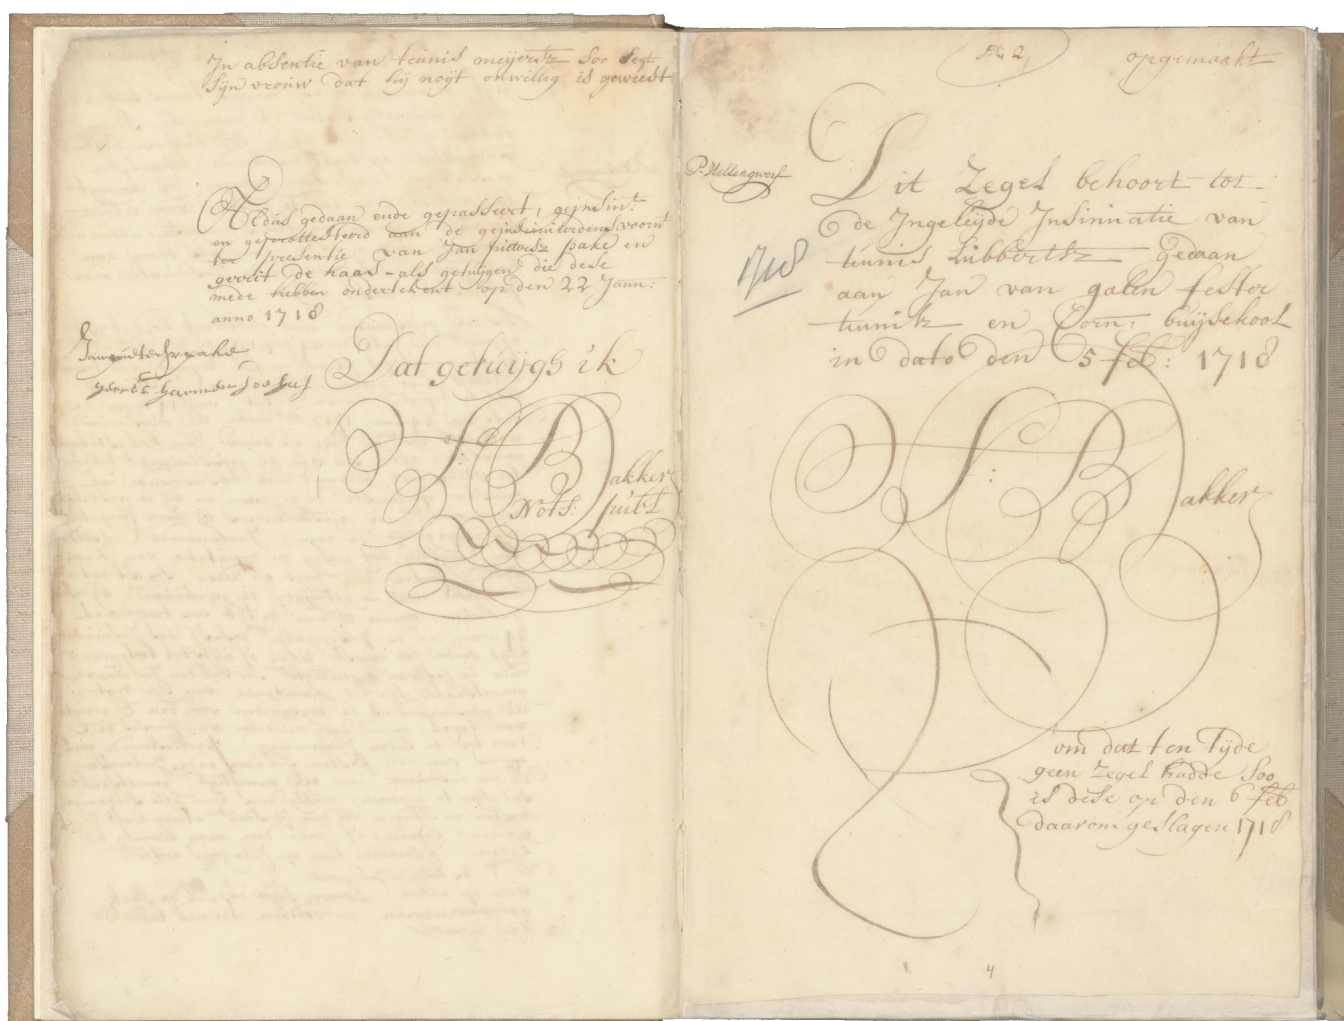 In absentie van teunis meijertsz soo segt
sijn vrouw dat hij noijt onwillig is geweest
Aldus gedaan ende gepasseert, geinsin:t
en geprottesteerd aan de geinsinueerdens voorn:t
ter presentie van Jan pietersz pake en
gerrit de haas - als getuijgen die dese
mede hebben ondertekent op den 22 Jann:
anno 1718
Jan pietersz pake
gerrit harmensz
Dat getuijgh ik
S: Bakker
Nots: publ
No 2
opgemaakt
P. Hellingwerf
1718
Dit Zegel behoort tot -
de Ingeleijde Insinuatie van
teunis Lubbertsz Gedaan
aan Jan van galen fester
teunisz en Corn: buijsekool
in dato den 5 feb: 1718
S: Bakker
om dat ten tijde
geen zegel hadde soo
is dese op den 6 feb
daarom geslagen 1718
4